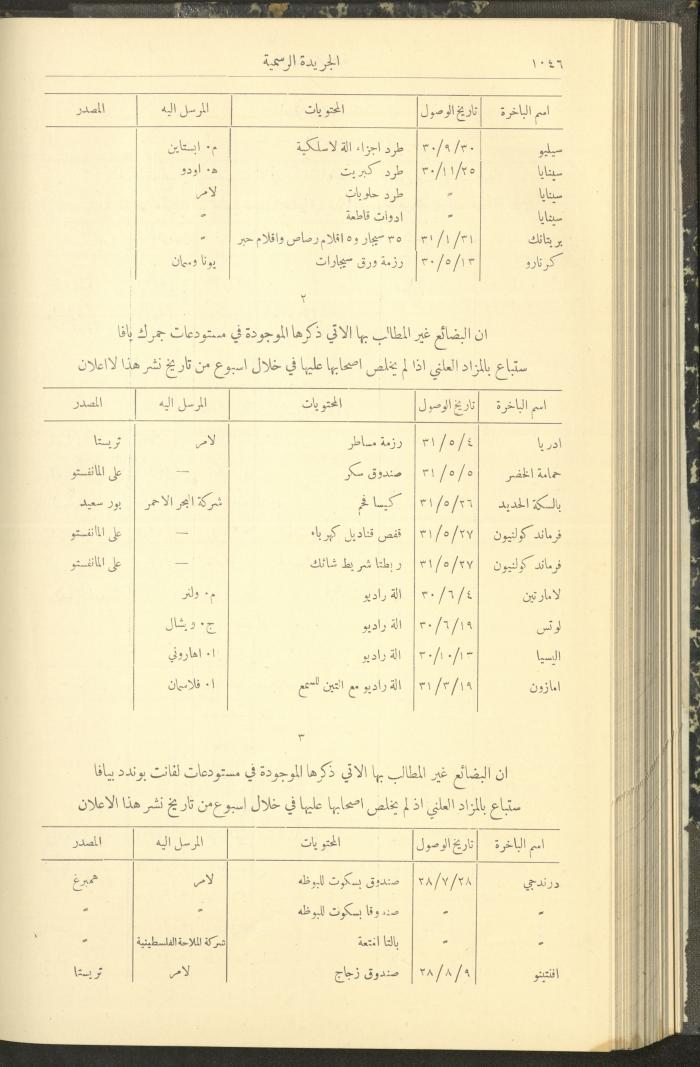 ١٠٤٦ الجريدة الرسمية
اسم الباخرة تاريخ الوصول المحتويات المرسل اليه المصدر
سيليو ٣٠/٩/٣٠ طرد اجزاء الة لاسلكية م٠ ابستاين
سينايا ٣٠/١١/٢٥ طرد كبريت ه٠ اودو
سينايا " طرد حلويات لامر
سينايا " ادوات قاطعة "
بريتانك ٣١/١/٣١ ٣٥ سيجار و٥ اقلام رصاص واقلام حبر "
كرنارو ٣٠/٥/١٣ رزمة ورق سيجارات يونا وسمان
٢
ان البضائع غير المطالب بها الاتي ذكرها الموجودة في مستودعات جمرك يافا
ستباع بالمزاد العلني اذا لم يخلص اصحابها عليها في خلال اسبوع من تاريخ نشر هذا لااعلان
اسم الباخرة تاريخ الوصول المحتويات المرسل اليه المصدر
ادريا ٣١/٥/٤ رزمة مساطر لامر تريستا
حمامة الخضر ٣١/٥/٥ صندوق سكر — على المانفستو
بالسكة الحديد ٣١/٥/٢٦ كيسا فحم شركة البحر الاحمر بور سعيد
فرماند كولنيون ٣١/٥/٢٧ قفص قناديل كهرباء — على المانفستو
فرماند كولنيون ٣١/٥/٢٧ ربطتا شريط شائك — على المانفستو
لامارتين ٣٠/٦/٤ الة راديو م٠ ولنر
لوتس ٣٠/٦/١٩ الة راديو ج٠ ويشال
اليسيا ٣٠/١٠/١٣ الة راديو ا٠ اهاروني
امازون ٣١/٣/١٩ الة راديو مع التين للسمع ا٠ فلاسمان
٣
ان البضائع غير المطالب بها الاتي ذكرها الموجودة في مستودعات لفانت بوندد بيافا
ستباع بالمزاد العلني اذ لم يخلص اصحابها عليها في خلال اسبوع من تاريخ نشر هذا الاعلان
اسم الباخرة تاريخ الوصول المحتويات المرسل اليه المصدر
درندجي ٢٨/٧/٢٨ صندوق بسكوت للبوظه لامر همبرغ
" " صندوقا بسكوت للبوظه " "
" " بالتا امتعة شركة الملاحة الفلسطينية "
افنتينو ٢٨/٨/٩ صندوق زجاج لامر تريستا